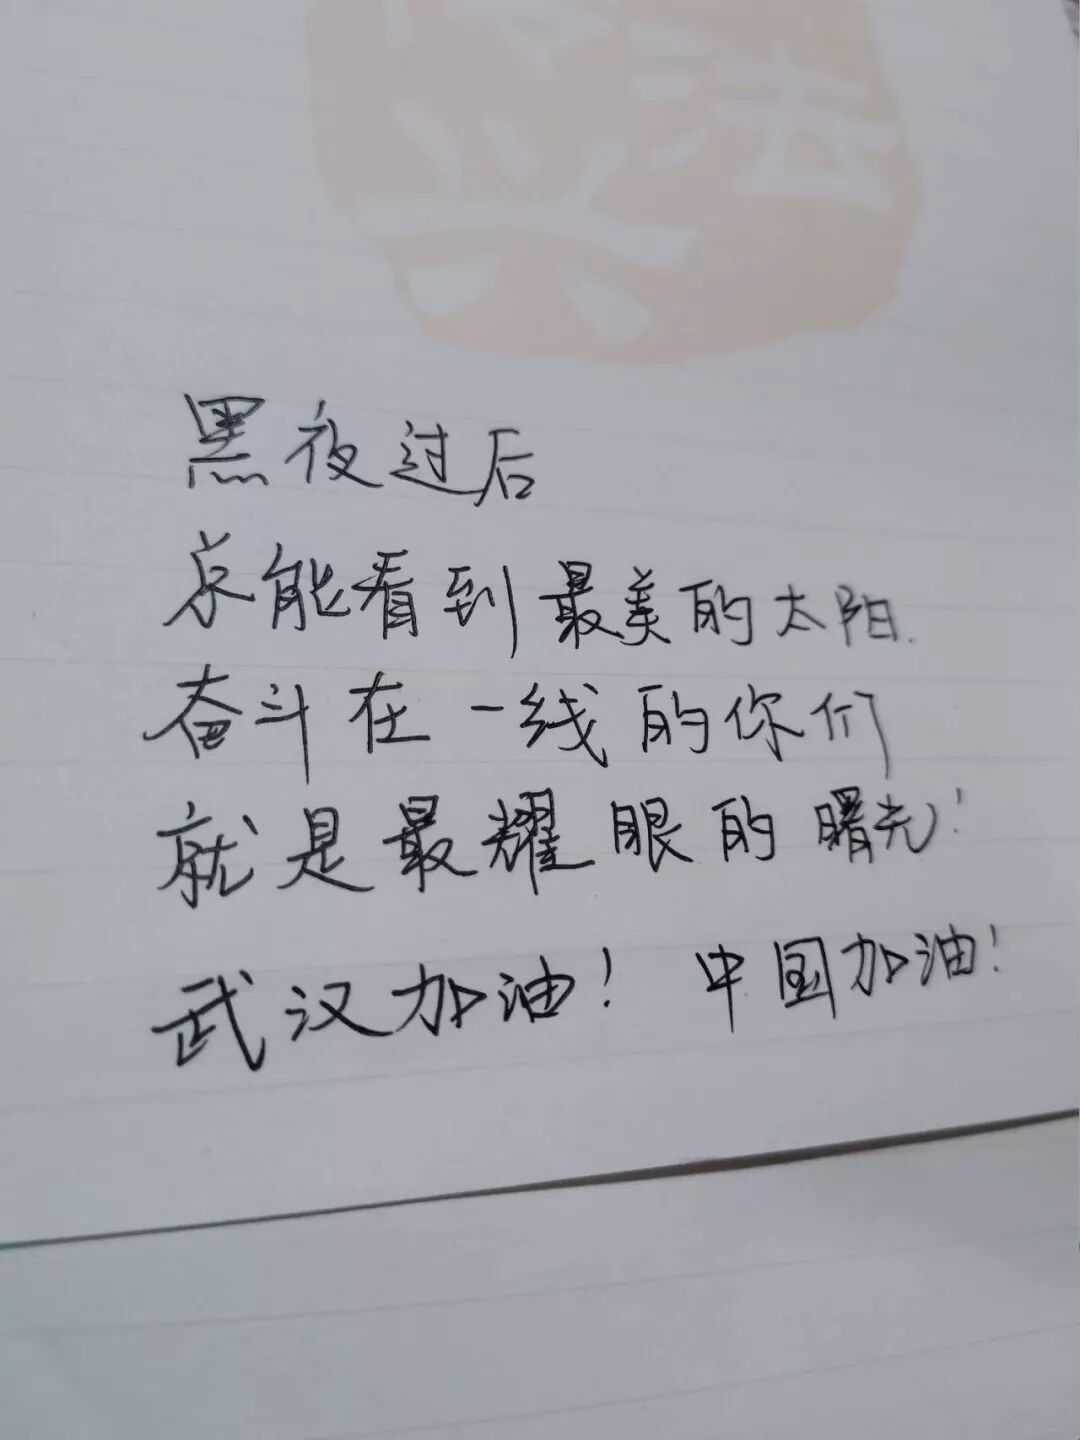 法
兴
黑夜过后
总能看到最美的太阳.
奋斗在一线的你们
就是最耀眼的曙光!
武汉加油! 中国加油!